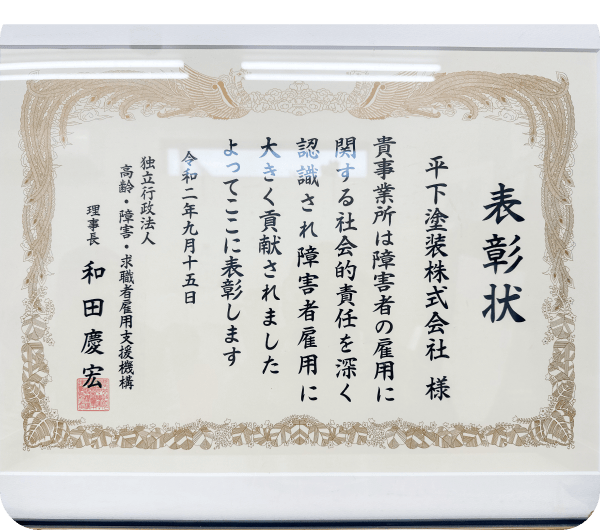 表彰状
平下塗装株式会社 様
貴事業所は障害者の雇用に
関する社会的責任を深く
認識され障害者雇用に
大きく貢献されました
よってここに表彰します
令和二年九月十五日
独立行政法人
高齢・障害・求職者雇用支援機構
理事長 和田慶宏